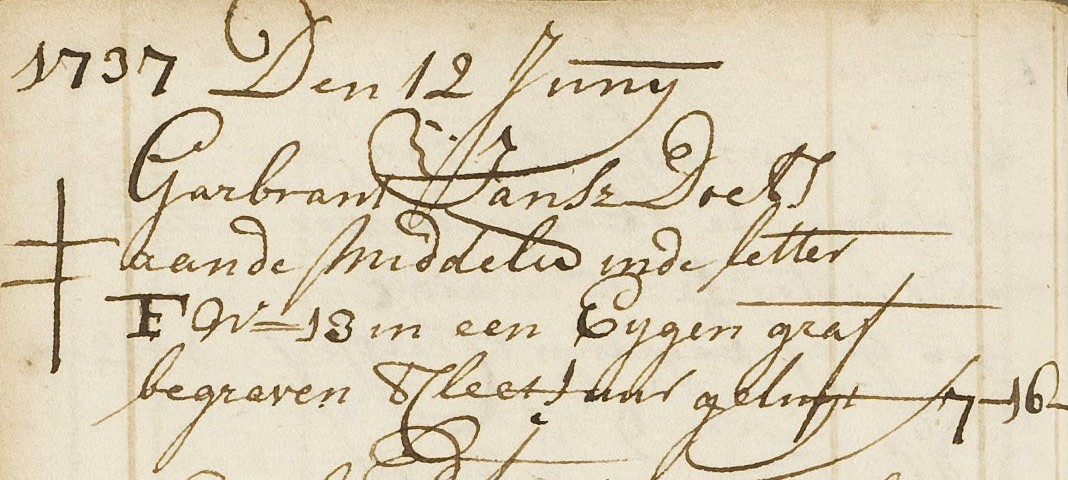 1737 Den 12 Juny
Garbrant Jansz Doets
aande Middelw inde letter
F No=13 in een Eygen graf
begraven & Cleet 1 uur geluyt f 7-16-